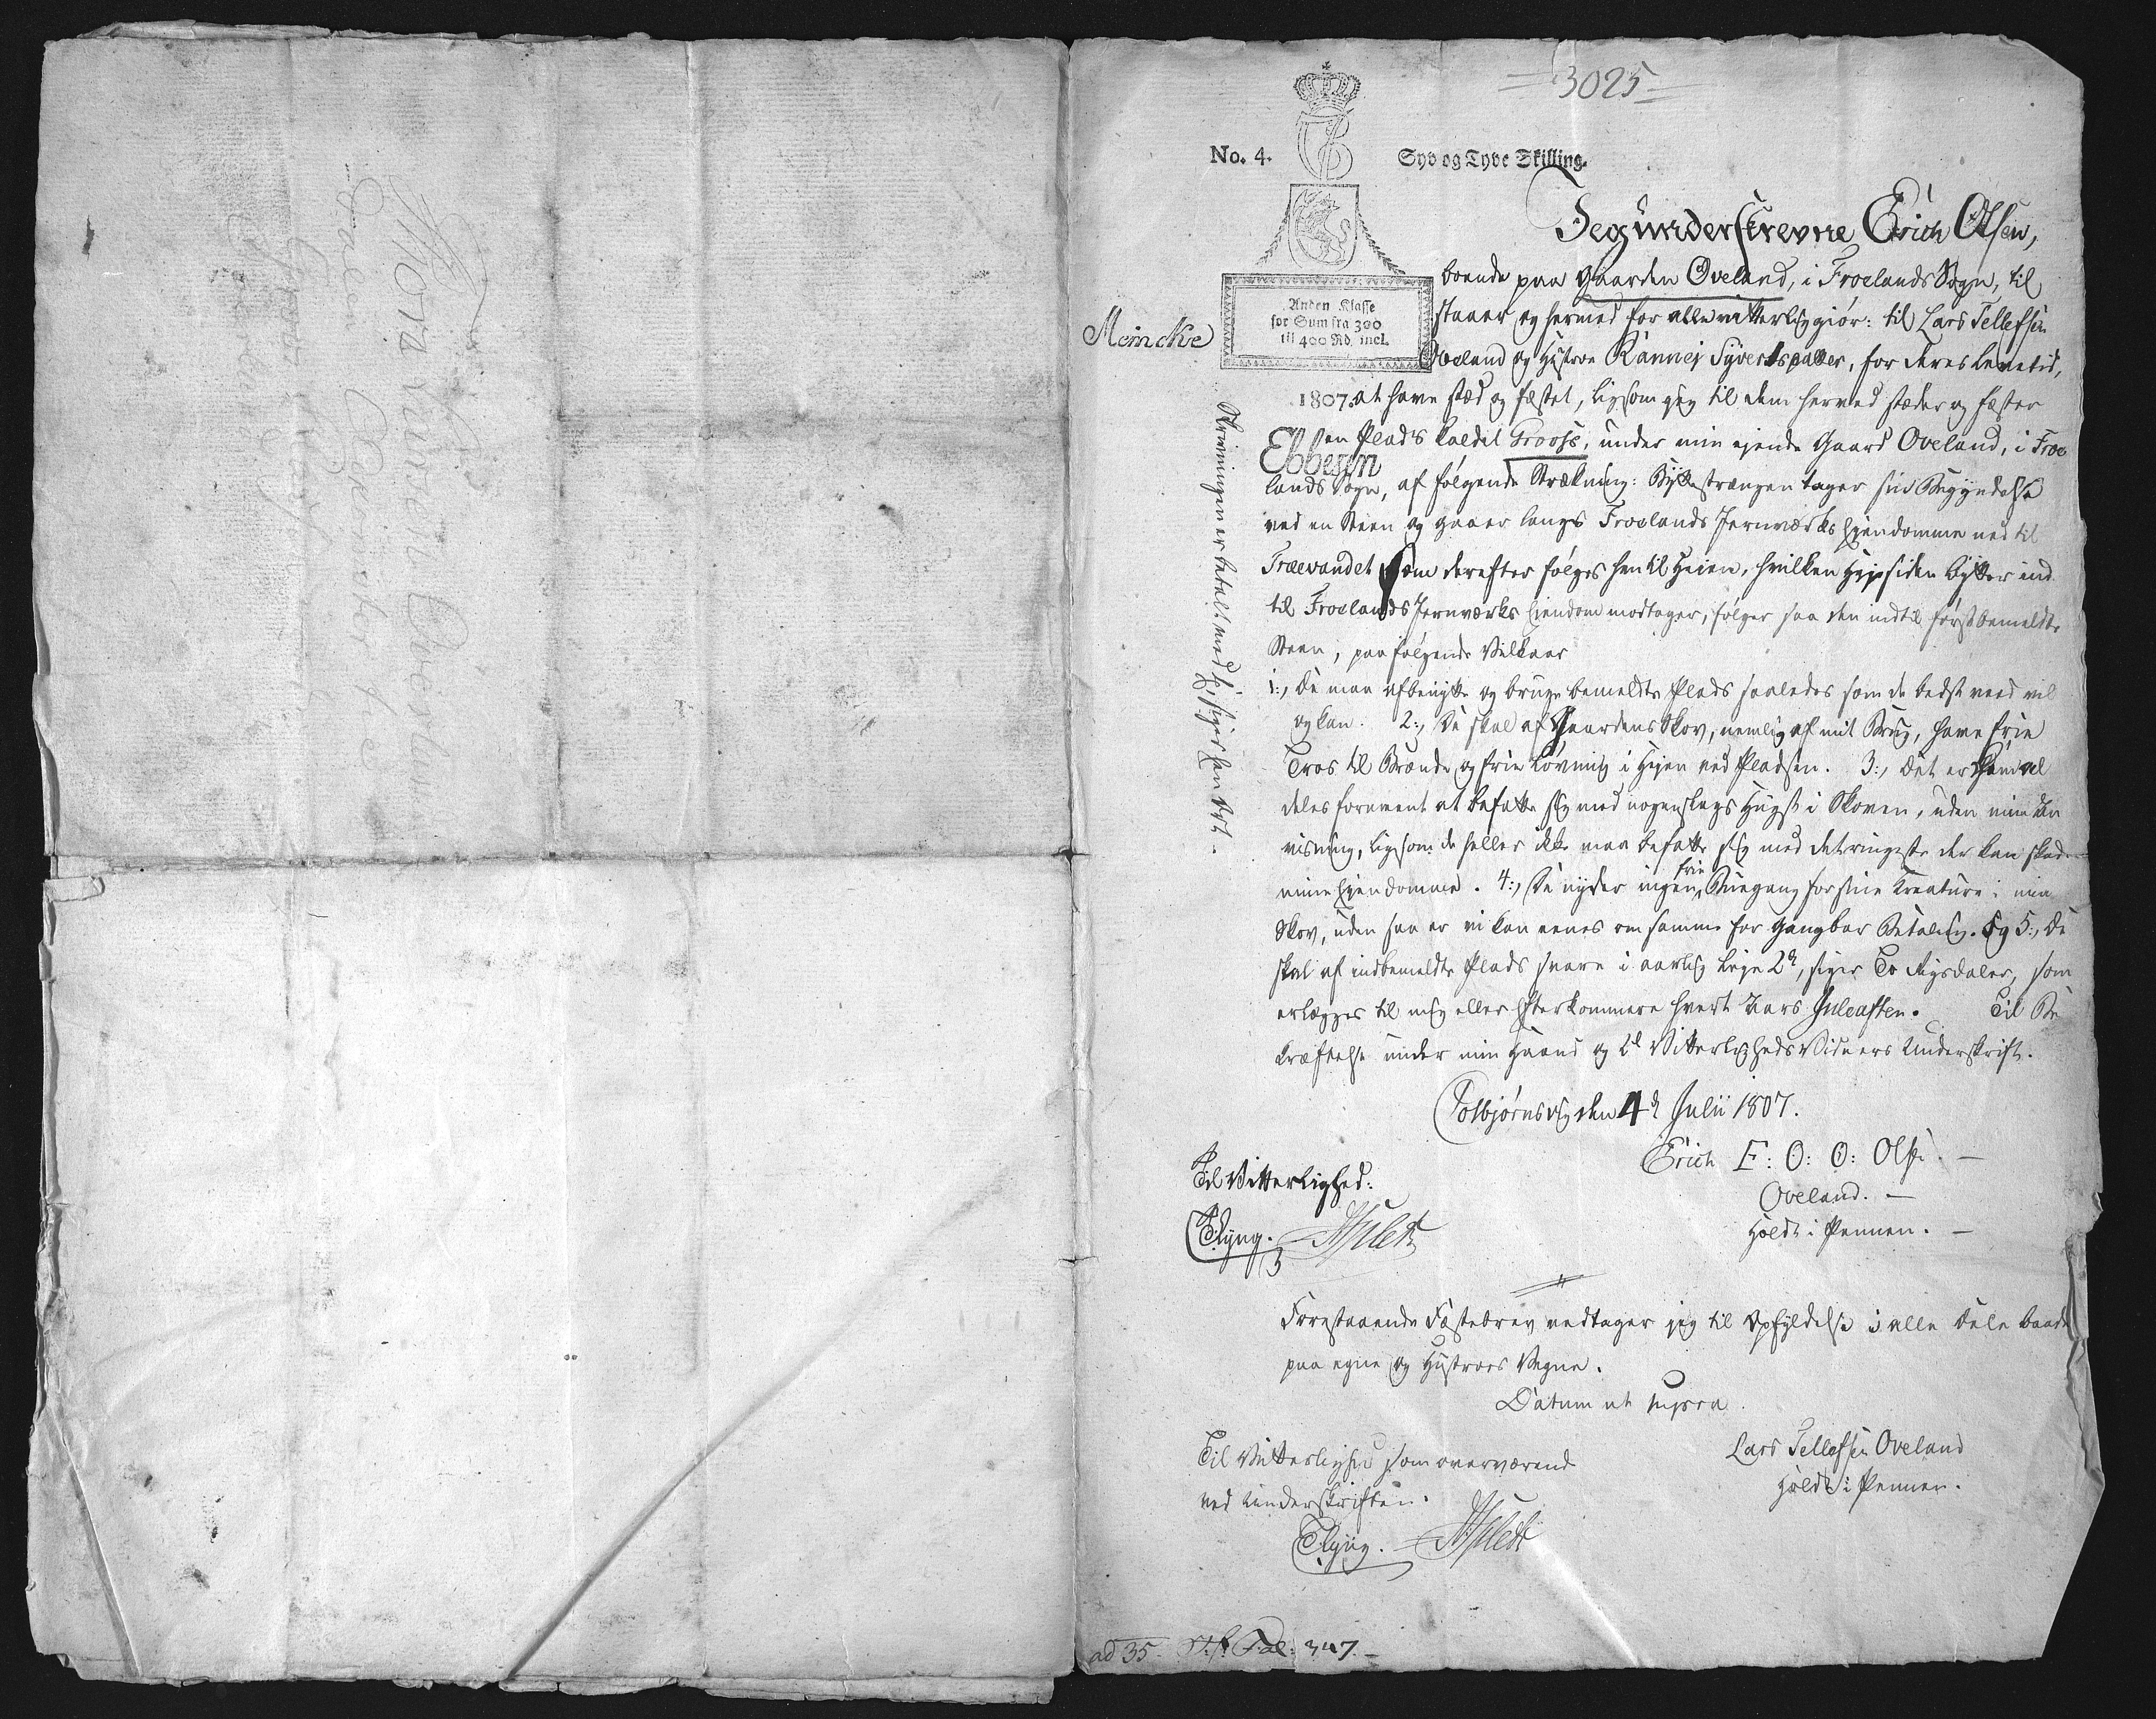 =3025=
No. 4.
Syv og Tyve Skilling.
Anden Klasse
for Sum fra 300
til 400 Rd. incl.
Meincke
1807.
Ebbesen
Jeg underskrevne Erich Olsen,
boende paa Gaarden Oveland, i Froelands Sogn, til
staaer og hermed for alle vitterlig giør: til Lars Tellefsen
Oveland og Hustroe Rannei Syvertsdatter, for deres Levetid,
at have stæd og fæstet, ligesom jeg til dem herved stæder og fæster
en Plads kaldet Groosse, under min ejende Gaard Oveland, i Froe
lands Sogn, af følgende Strækning: Byttestrængen tager sin Begyndelse
ved en Steen og gaaer langs Froelands Jernværks Ejendomme ned til
Trævandet som derefter følges hen til Heien, hvilken Hejesiden bytter ind
til Froelands Jernværks Eiendom modtager, følger saa den indtil først bemeldte
Steen, paa følgende Vilkaar
1:, De maa afbenytte og bruge bemeldte Plads saaledes som de bedst veed vil
og kan. 2:, De skal af Gaardens Skov, nemlig af mit Brug, have frie
Tros til Brænde og frie Løvning i Hejen ved Pladsen. 3:, Det er dem al
deles forment at befatte sig med nogenslags Hugst i Skoven, uden min An
visning, ligesom de heller ikke maa befatte sig med det ringeste der kan skade
mine Ejendomme. 4:, De nyder ingen frie Buegang for sine Kreature i min
Skov, uden saa er vi kan eenes om samme for gangbar Betaling. Og 5:, De
skal af indbemeldte Plads svare i aarlig Leje 2 rd, siger To Rigsdaler, som
erlægges til mig eller Efterkommere hvert Aars Juleaften. Til Be
kræftelse under min Haand og 2de Vitterligheds Vidners Underskrift.
Kolbjørnsvig den 4de Julii 1807.
Erich E: O: O: Olsen. —
Oveland. —
Holdt i Pennen. —
Til Vitterlighed:
TLyng.
Forestaaende Fæstebrev vedtager jeg til Opfyldelse i alle Dele baade
paa egne og Hustroes Vegne.
Datum ut supra.
Lars Tellefsen Oveland
holdt i Pennen.
Til Vitterlighed som overværende
ved Underskriften.
TLyng.
ad 35. Fol: 347. —